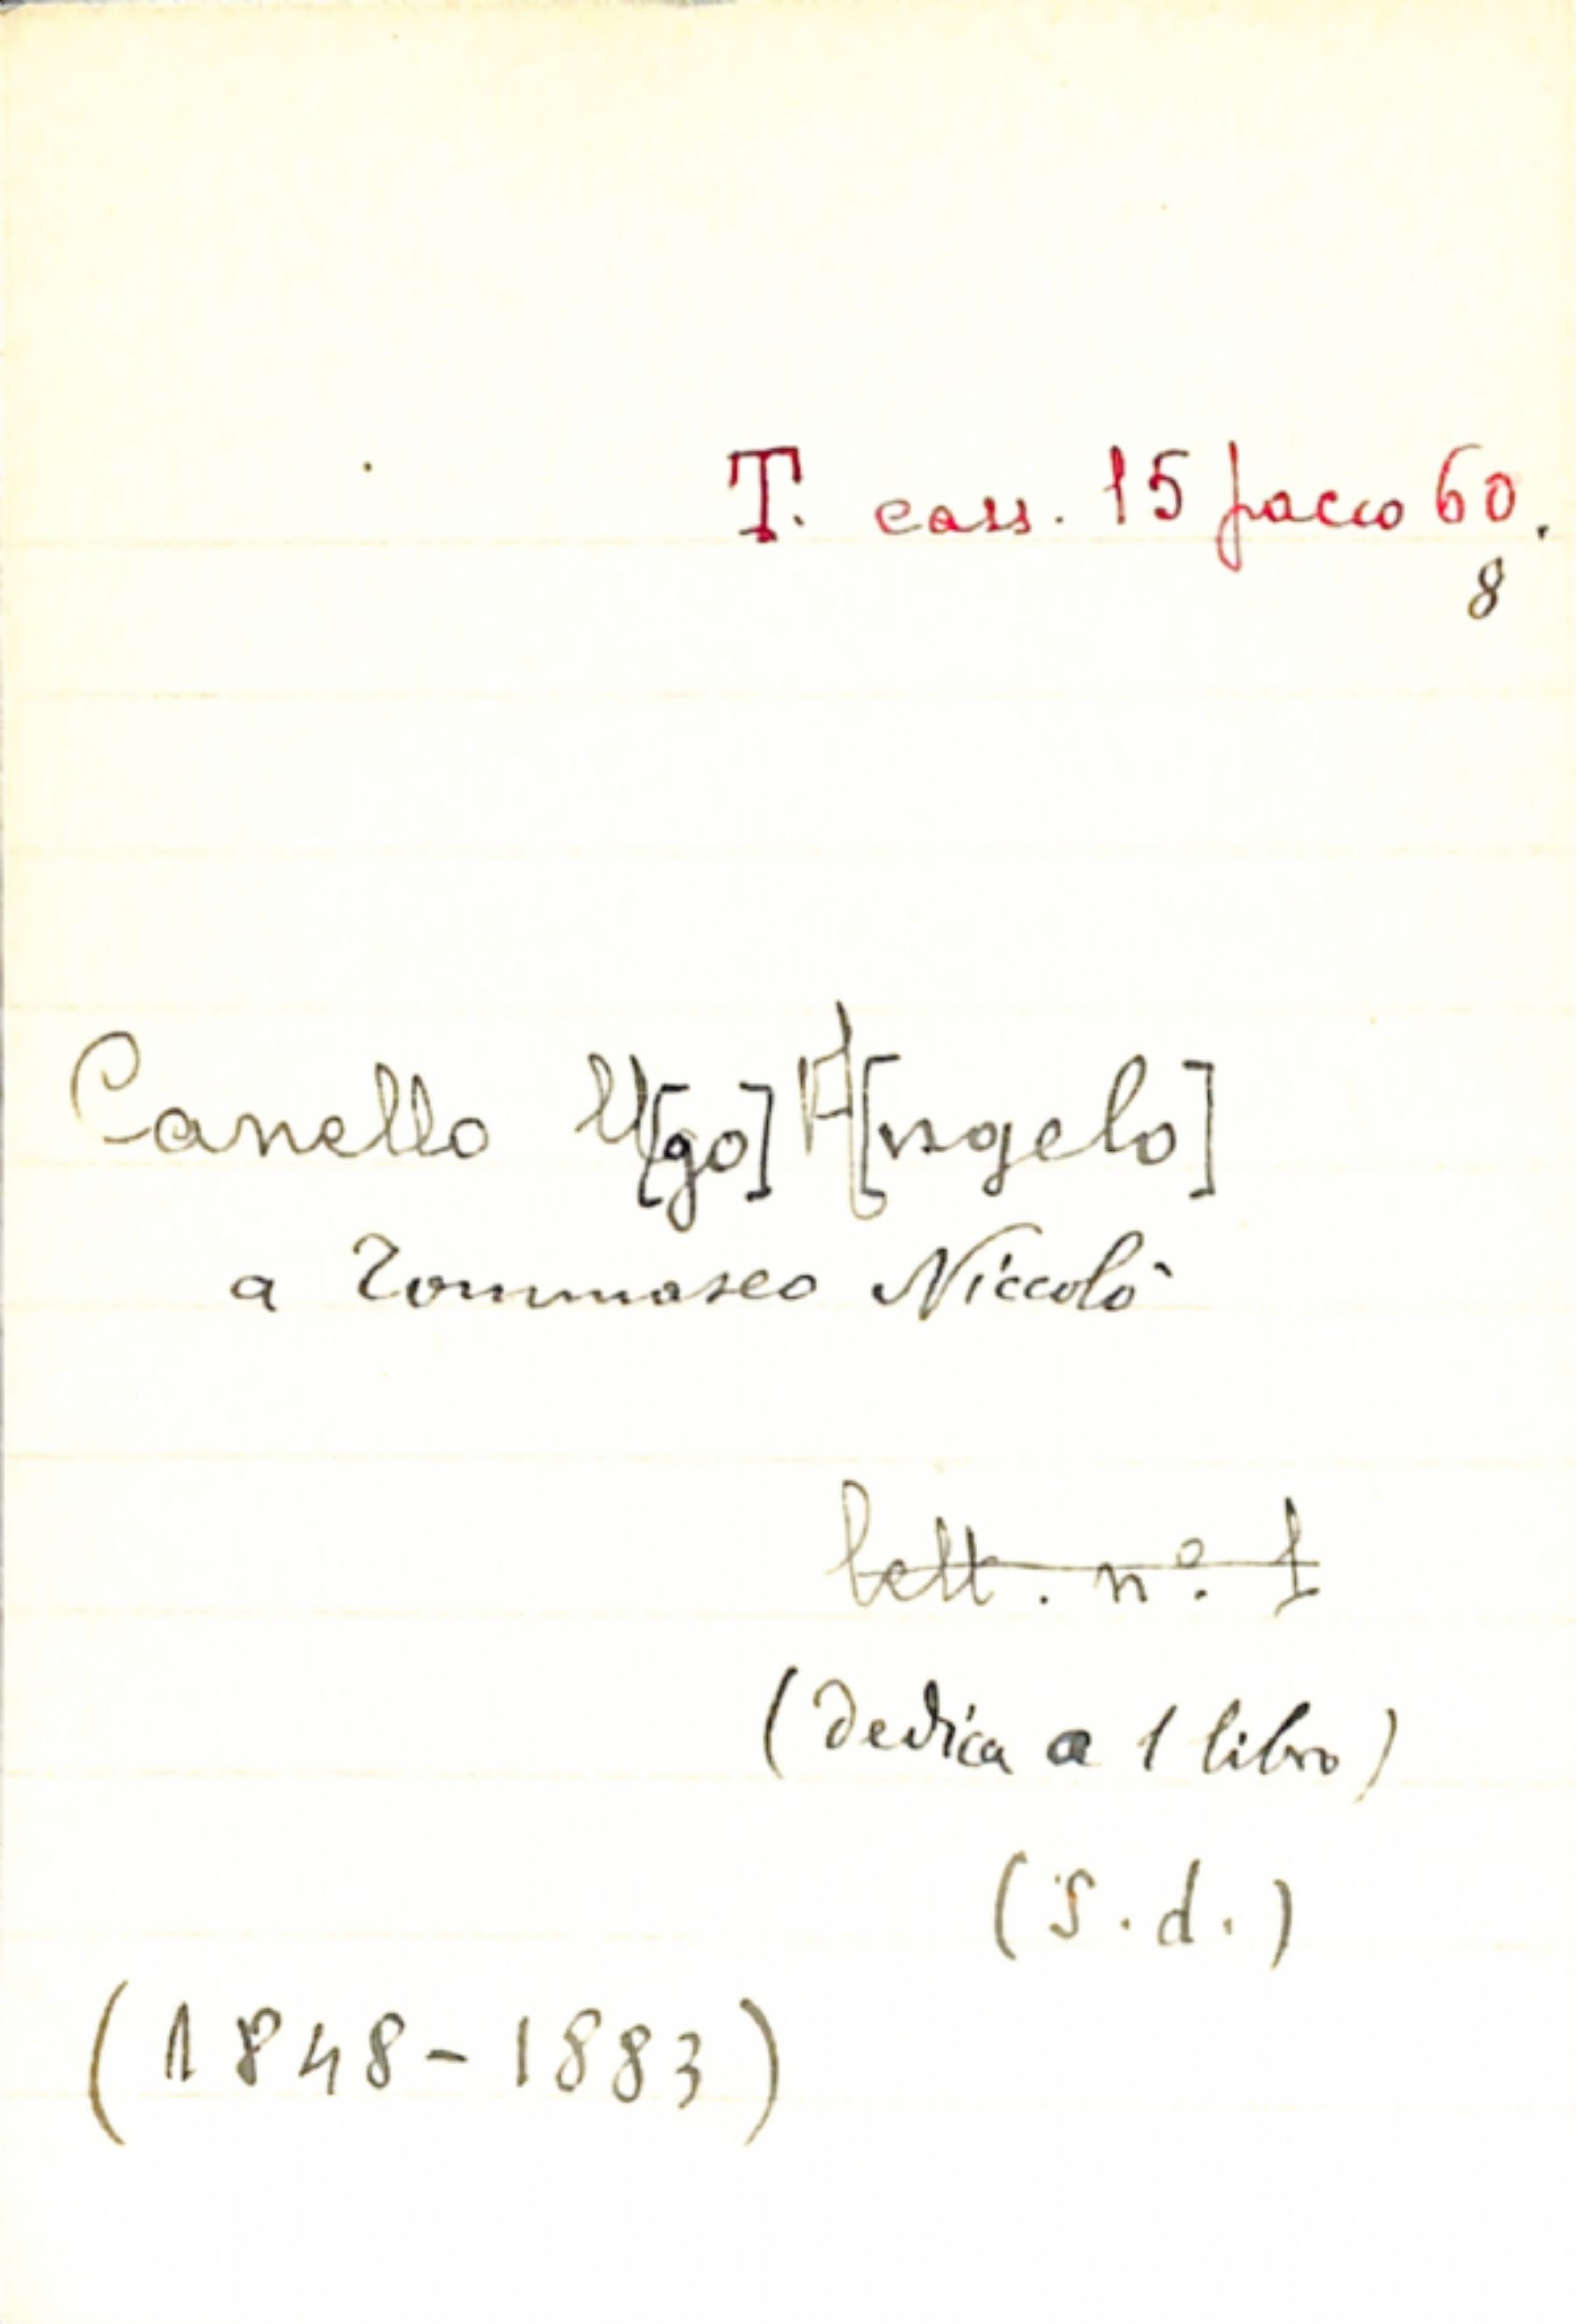 T. cass. 15 pacco 60.
8
Canello U[go] A[ngelo]
a Tommaseo Niccolò
lett. n°. 1
(dedica a 1 libro)
(S. d.)
(1848-1883)